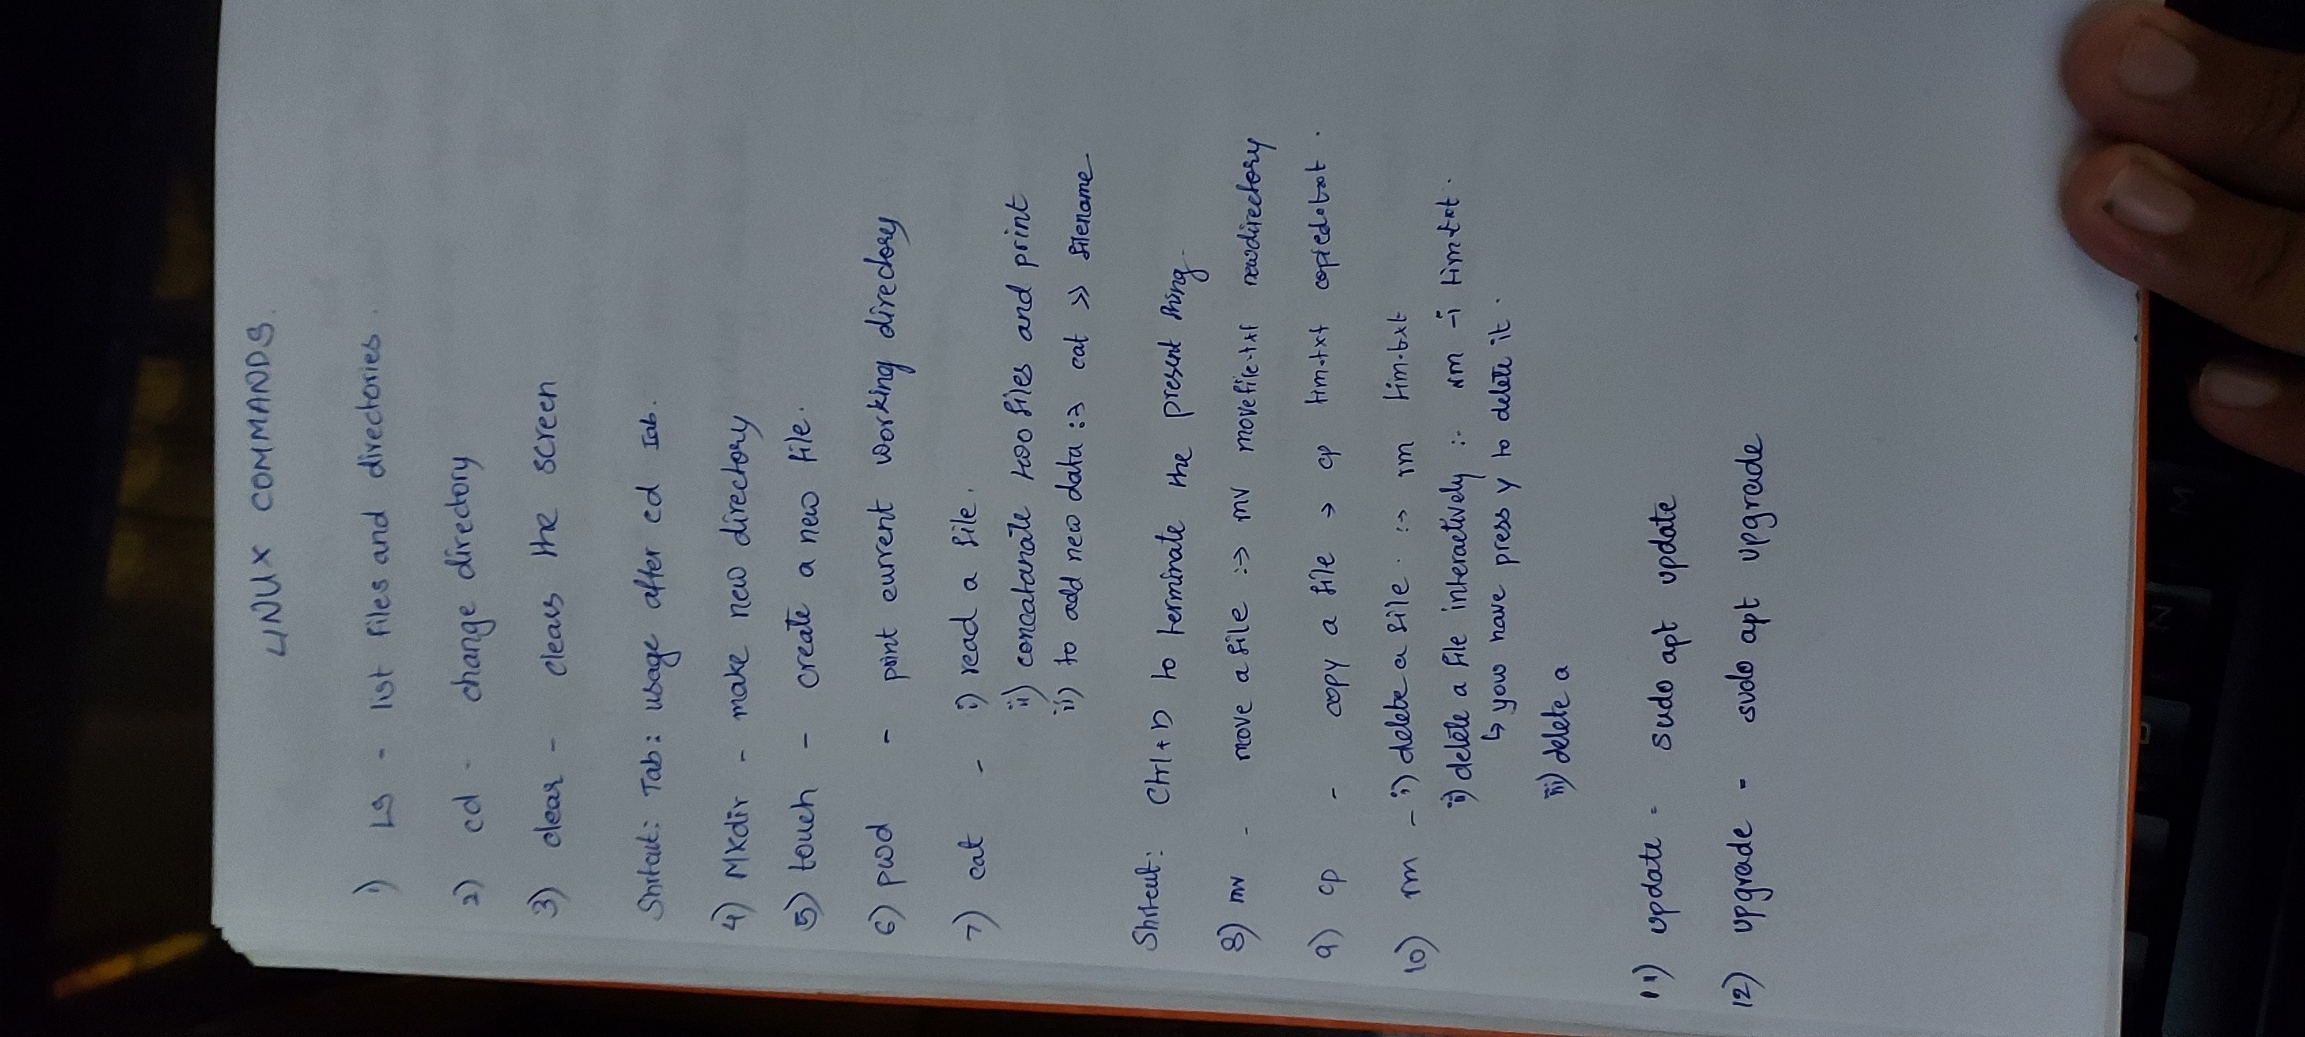 LINUX COMMANDS.
1) LS - list files and directories.
2) cd - change directory
3) clear - clears the screen
Shrtcut: Tab: usage after cd Tab.
4) Mkdir - make new directory
5) touch - create a new file.
6) pwd - print current working directory
7) cat - i) read a file.
ii) concatanate two files and print
iii) to add new data :→ cat >> filename
Shrtcut: Ctrl+D to terminate the present thing.
8) mv - move a file :→ mv movefile.txt newdirectory
9) cp - copy a file → cp tim.txt copied.txt.
10) rm - i) delete a file. :→ rm tim.txt
ii) delete a file interactively :- rm -i tim.txt.
↳ you have press y to delete it.
iii) delete a
11) update - sudo apt update
12) upgrade - sudo apt upgrade
N M